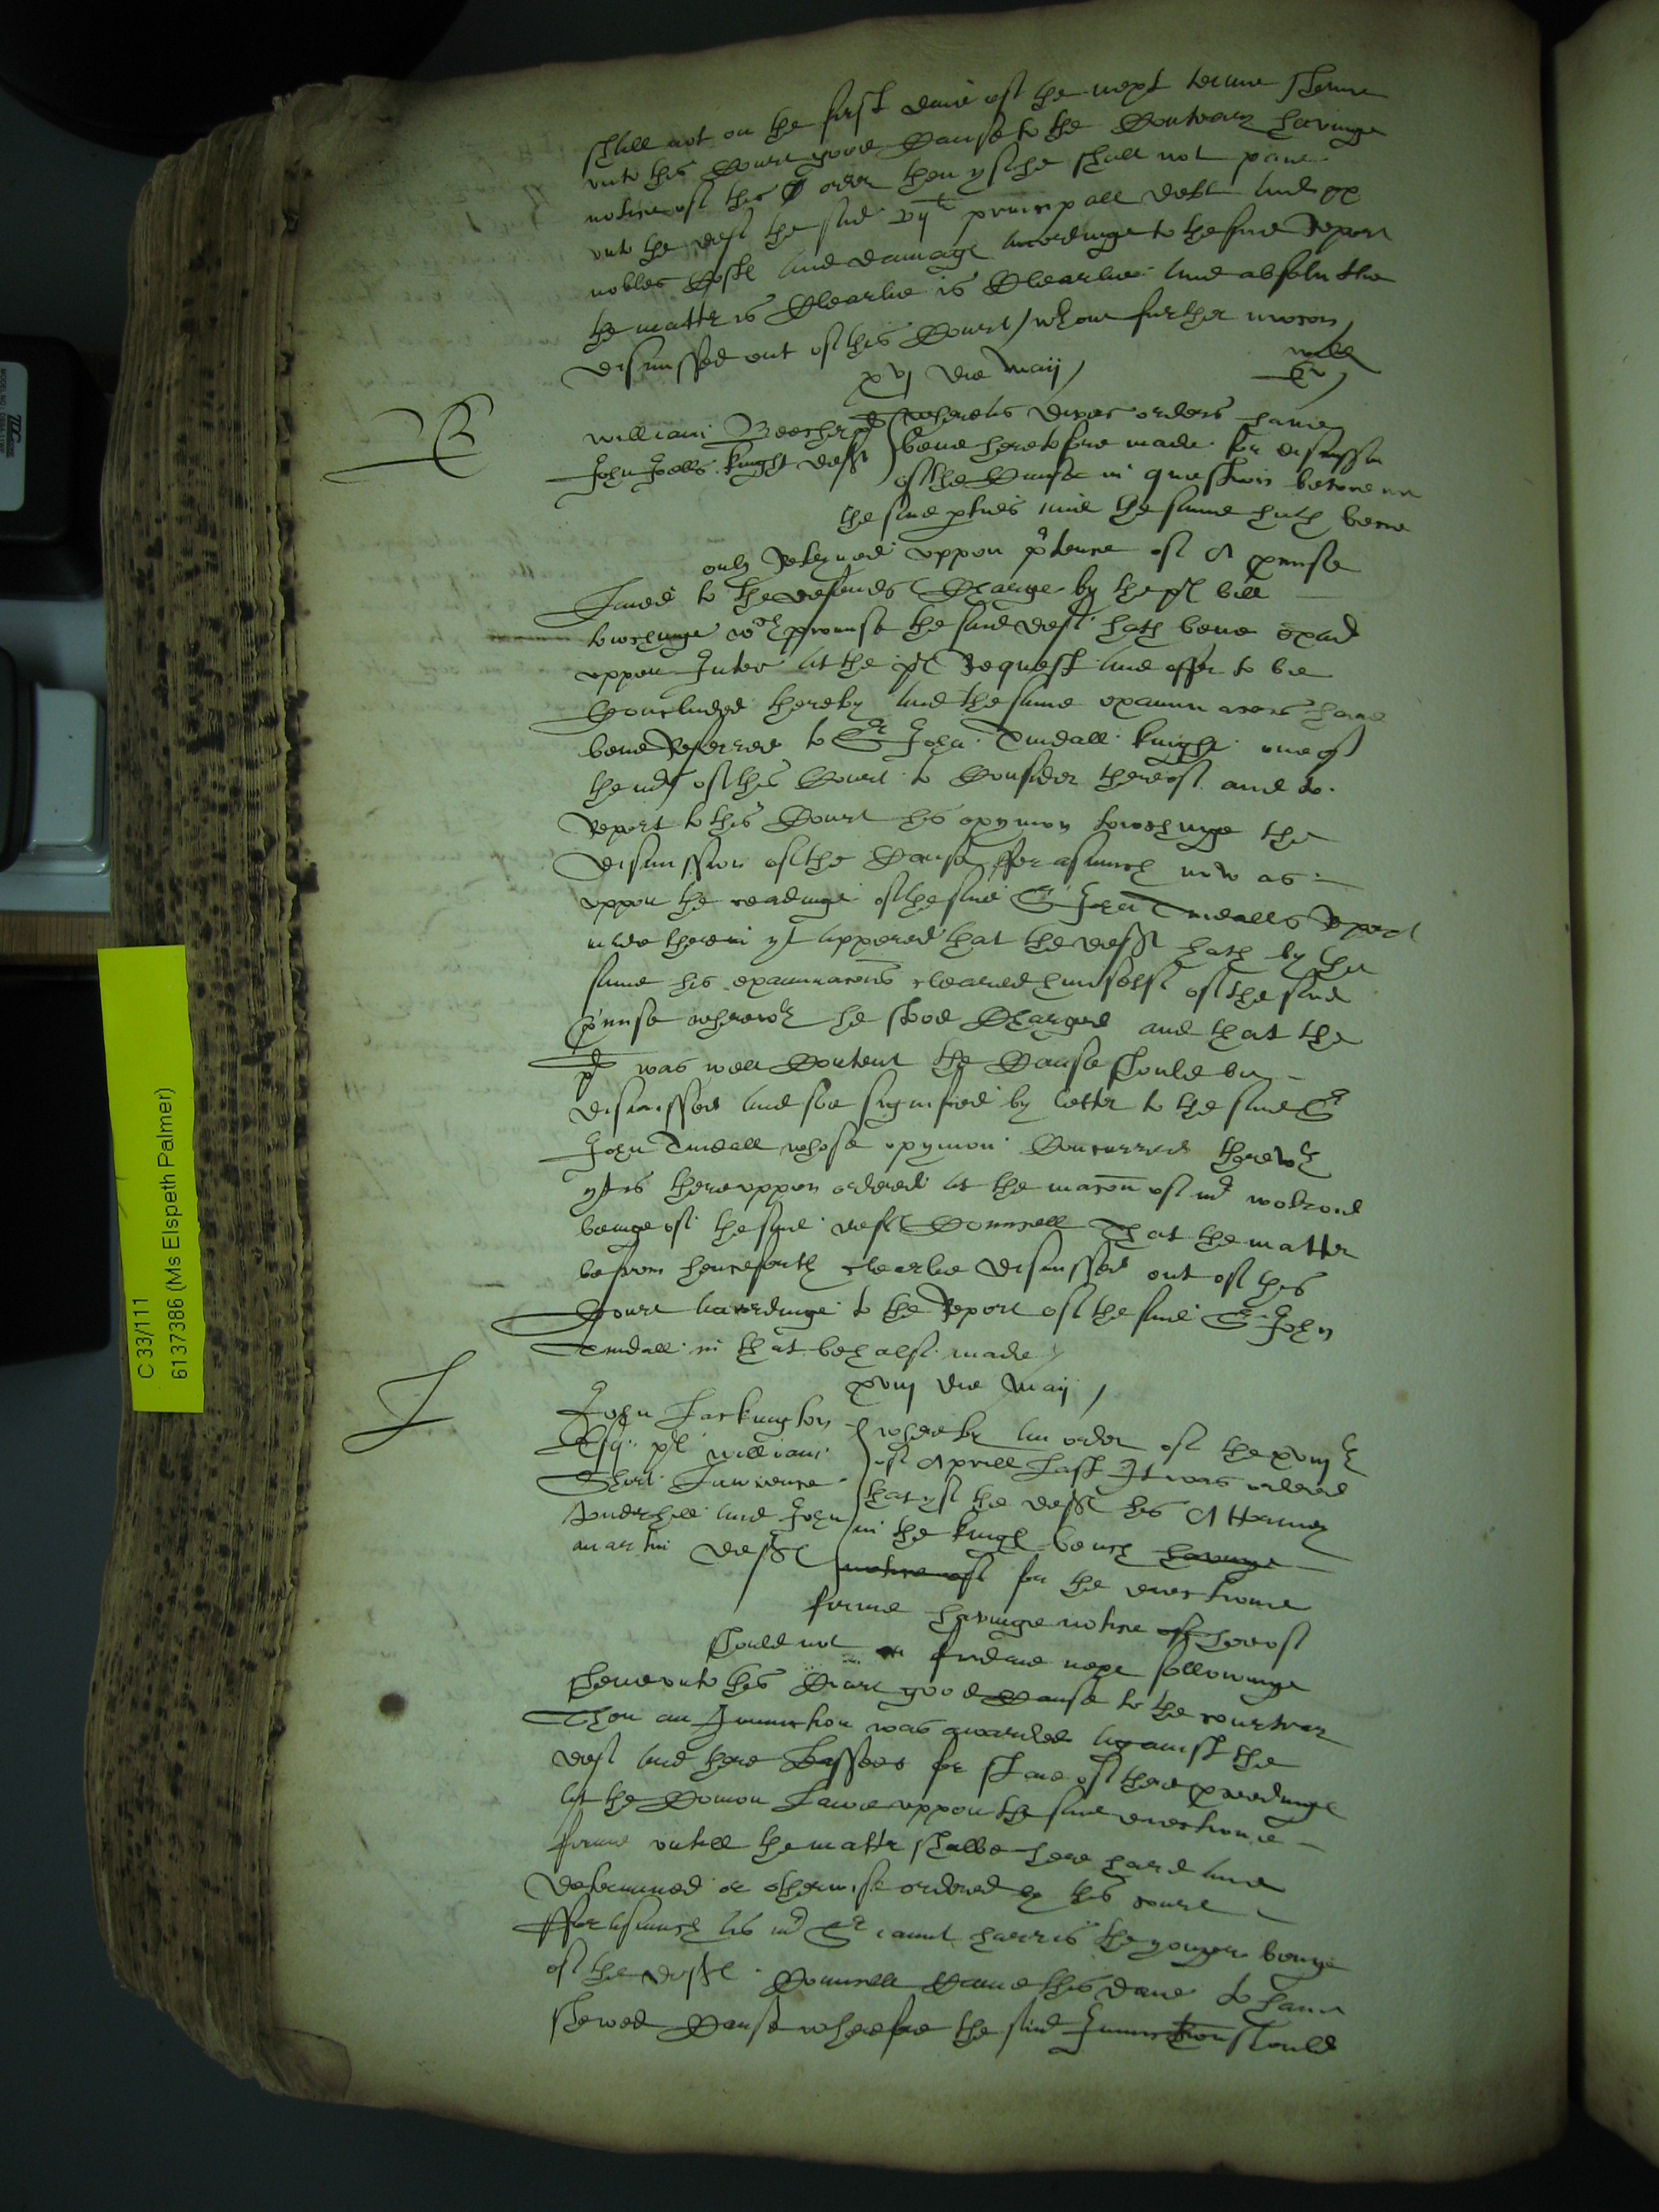 shall not on the first daie of the next terme shewe
unto this Court good Cause to the Contrary havinge
notice of this order then yf he shall not paie
unto the def the said principall debt and xx
nobles Costs and damags accordinge to the said Report
the mattr is Clearlie is Clearlie and absolutlie
dismissed out of this Court / wthout further mocon /
xvj die Maij /
B
William Beecher pl
John Fobbs knight deft
Whereas divers orders have
bene heretofore made for dismission
of the Cause in question betweene
the said pties and the same hath bene
only Retayned uppon ptence of A pmise
Laied to the defends Charge by the pl bill
towchinge wch promise the said deft hath bene exaied
uppon Inter at the pl Request and offer to be
Concluded thereby and the same examinacons have
bene Referred to Sr John Tindall knight one of
the mrs of this Court to Consider thereof and to
Report to this Court his opynion towchinge the
dismission of the Cause, fforasmuch now as
uppon the readinge of the said Sr John Tindalls Report
made therein yt appered that the deft hath by the
same his examinacons cleared himselfe of the said
pmise wherewth he stood Charged and that the
pl was well Content the Cause should be
dismissed and soe signified by letter to the said Sr
John Tindall whose opynion Concurred therewth
yt is thereuppon ordered at the mocon of mr
beinge of the said defts Counsell That the matter
be from henceforth clearlie dismissed out of this
Court accordinge to the Report of the said Sr John
Tindall in that behalfe made /
xviij die Maij /
J
John Jackington
Esq. pl William
Short Lawrence
Underhill and John
Martin defts
whereby an order of the xviijth
of Aprill last It was ordered
that yf the defts his Attorney
in the kings bench havinge
notice of for the eiectione
firme havinge notice of hereof
should not on fridaie next followinge
shewe unto this Court good Cause to the contrary
Then an Iniunction was awarded against the
deft and there Lessees for staie of there pceedings
at the Comon Lawe uppon the said eiectione
firme untill the mattr shalbe here hard and
determined or otherwise ordered by this court
fforasmuch as mr Sr iaunt harris the yonger beinge
of the defts Counsell Came this daie to have
shewed Cause wherefore the said Iniunction should
C 33/111
6137386 (Ms Elspeth Palmer)